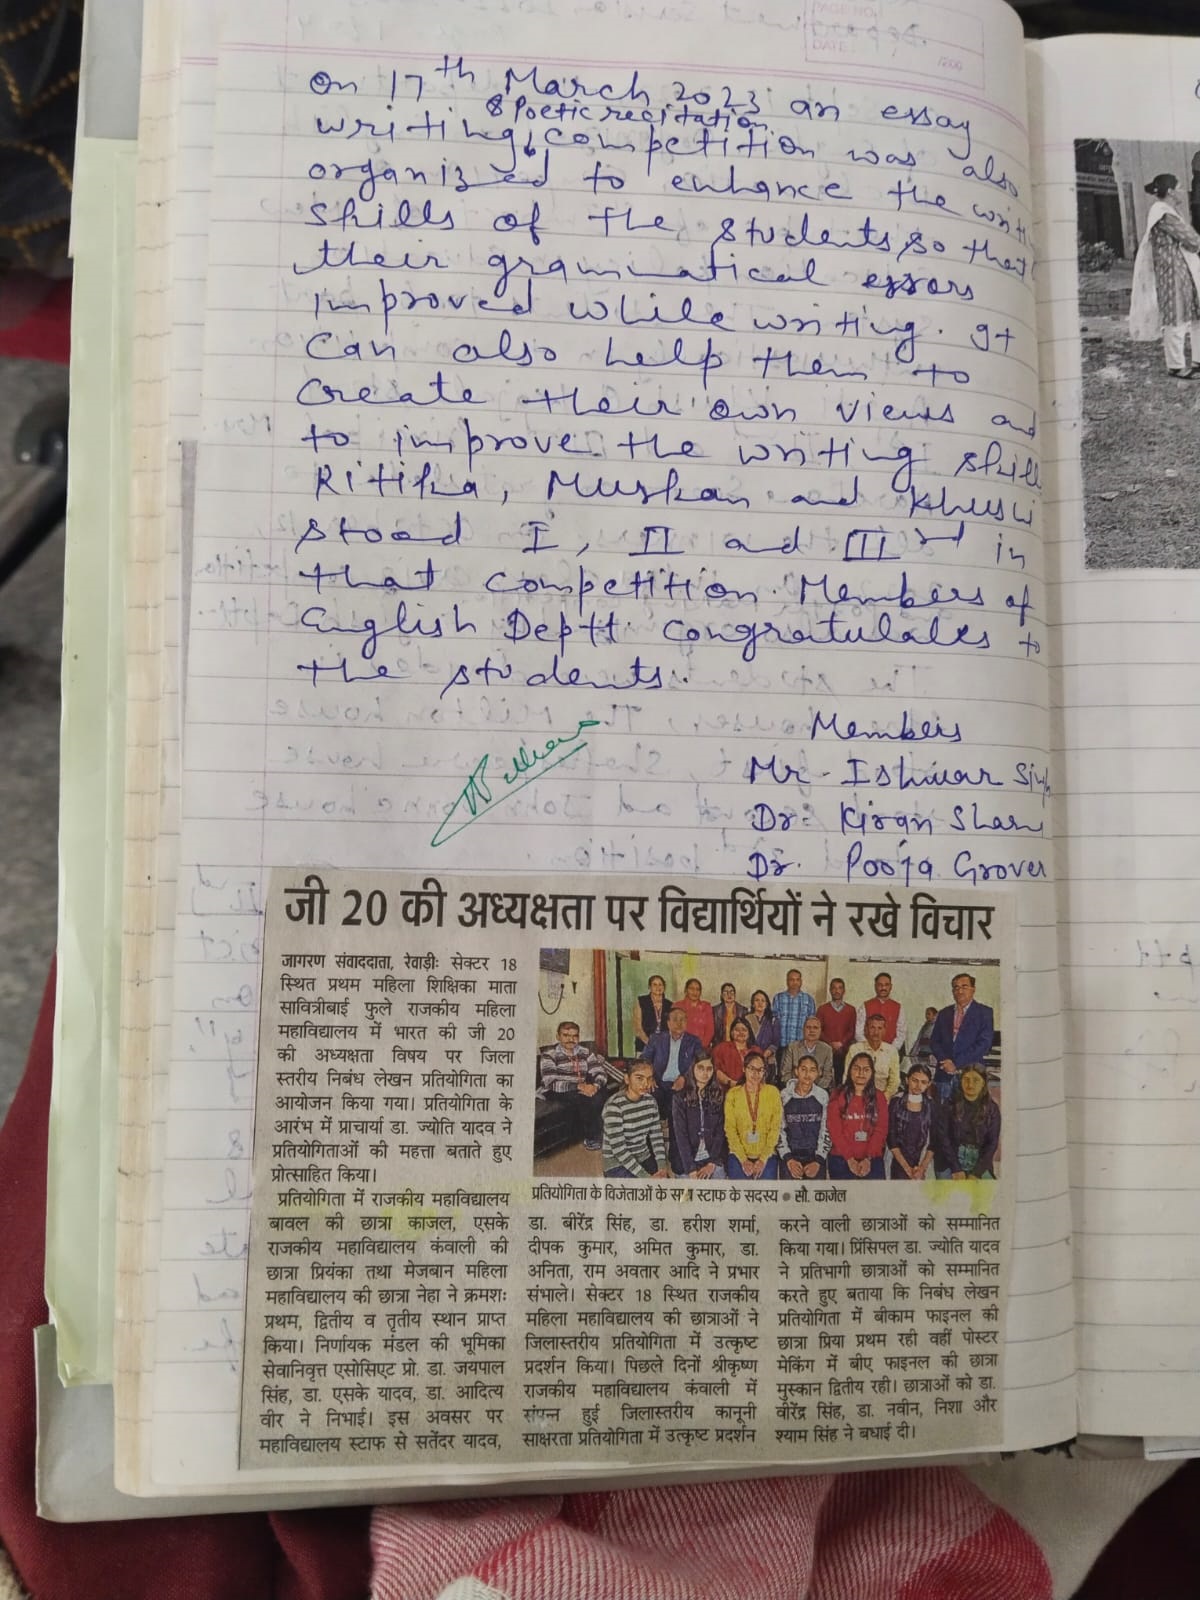 On 17th March 2023 an essay
& Poetic recitation
writing competition was also
organized to enhance the writi
skills of the students, so that
their grammatical errors
improved while writing. It
can also help them to
create their own views and
to improve the writing skill
Ritika, Muskan and Khushi
stood I, II and IIIrd in
that competition. Members of
English Deptt. congratulates to
the students.
Members
Mr. Ishwar Singh
Dr. Kiran Sharm
Dr. Pooja Grover
जी 20 की अध्यक्षता पर विद्यार्थियों ने रखे विचार
जागरण संवाददाता, रेवाड़ीः सेक्टर 18
स्थित प्रथम महिला शिक्षिका माता
सावित्रीबाई फुले राजकीय महिला
महाविद्यालय में भारत की जी 20
की अध्यक्षता विषय पर जिला
स्तरीय निबंध लेखन प्रतियोगिता का
आयोजन किया गया। प्रतियोगिता के
आरंभ में प्राचार्या डा. ज्योति यादव ने
प्रतियोगिताओं की महत्ता बताते हुए
प्रोत्साहित किया।
प्रतियोगिता में राजकीय महाविद्यालय
बावल की छात्रा काजल, एसके
राजकीय महाविद्यालय कंवाली की
छात्रा प्रियंका तथा मेजबान महिला
महाविद्यालय की छात्रा नेहा ने क्रमशः
प्रथम, द्वितीय व तृतीय स्थान प्राप्त
किया। निर्णायक मंडल की भूमिका
सेवानिवृत्त एसोसिएट प्रो. डा. जयपाल
सिंह, डा. एसके यादव, डा. आदित्य
वीर ने निभाई। इस अवसर पर
महाविद्यालय स्टाफ से सतेंदर यादव,
प्रतियोगिता के विजेताओं के स स्टाफ के सदस्य ● सौ. काजेल
डा. बीरेंद्र सिंह, डा. हरीश शर्मा,
दीपक कुमार, अमित कुमार, डा.
अनिता, राम अवतार आदि ने प्रभार
संभाले। सेक्टर 18 स्थित राजकीय
महिला महाविद्यालय की छात्राओं ने
जिलास्तरीय प्रतियोगिता में उत्कृष्ट
प्रदर्शन किया। पिछले दिनों श्रीकृष्ण
राजकीय महाविद्यालय कंवाली में
संपन्न हुई जिलास्तरीय कानूनी
साक्षरता प्रतियोगिता में उत्कृष्ट प्रदर्शन
करने वाली छात्राओं को सम्मानित
किया गया। प्रिंसिपल डा. ज्योति यादव
ने प्रतिभागी छात्राओं को सम्मानित
करते हुए बताया कि निबंध लेखन
प्रतियोगिता में बीकाम फाइनल की
छात्रा प्रिया प्रथम रही वहीं पोस्टर
मेकिंग में बीए फाइनल की छात्रा
मुस्कान द्वितीय रही। छात्राओं को डा.
वीरेंद्र सिंह, डा. नवीन, निशा और
श्याम सिंह ने बधाई दी।